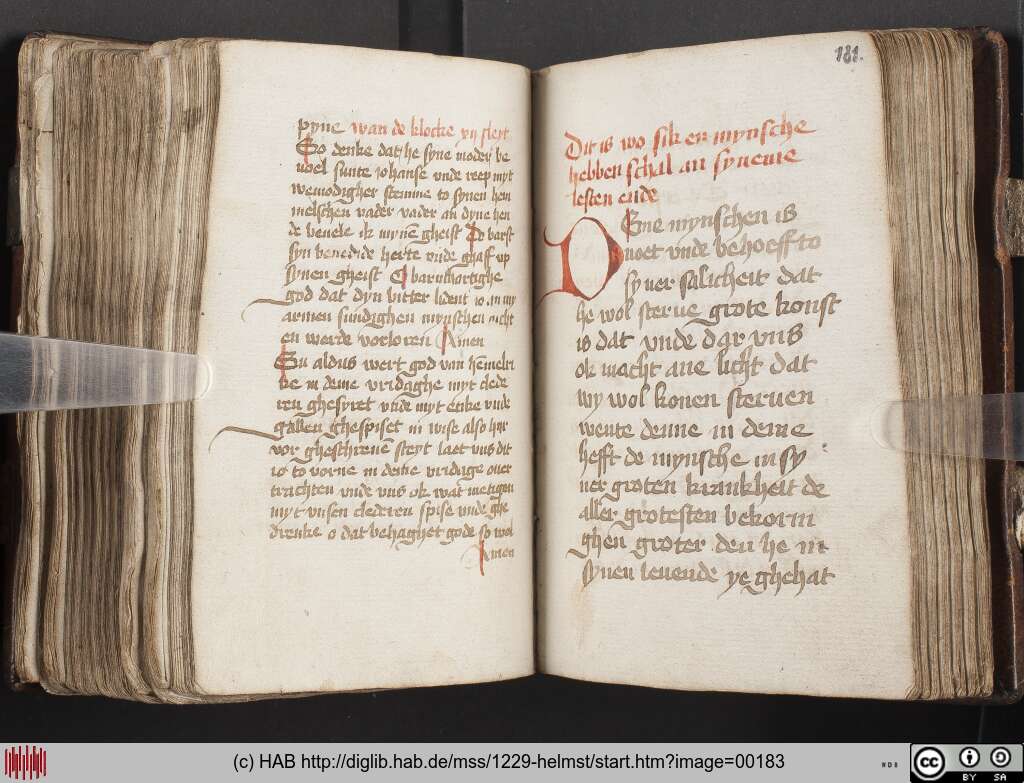 pyne wan de klocke vij sleyt
So denke dat he syne moder be
uoel sunte iohanse vnde reep myt
wemodigher stemme to synen hem
melschen vader vader an dyne hen
de beuele ik mynē gheist Do barst
syn benedide herte vnde ghaff up
synen gheist O barmhartighe
god dat dyn bitter lident io an my
armen sundighen mynschen nicht
en werde vorloren Amen
Su aldus wert god van hemelri
ke in deme vridaghe myt clede
ren ghesyret vnde myt etike vnde
gallen ghespiset in wise also hir
vor ghescreuē steyt laet vns dit
io to vorne in deme vridage ouer
trachten vnde vns ok wat metigen
myt vnsen clederen spise vnde ghe
drenke o dat behaghet gode so wol
Amen
181.
Dit is wo sik en mynsche
hebben schal an syneme
lesten ende
Deme mynschen is
noet vnde behoeff to
syner salicheit dat
he wol sterue grote konst
is dat vnde dar vns
ok macht ane licht dat
wy wol konen steruen
wente denne in deme
hefft de mynsche in sy
ner groten krankheit de
aller grotesten bekorin
ghen groter den he in
synen leuende ye ghehat
(c) HAB http://diglib.hab.de/mss/1229-helmst/start.htm?image=00183
WDB
cc BY SA